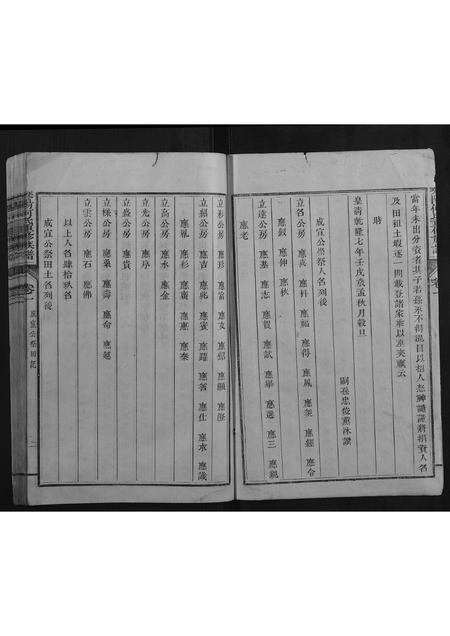 當年未出分資者其子若孫不得混目以招人怨神譴謹將捐資人名
及田租土嘏逐一開載登諸家乘以垂來禩云
時
皇清乾隆七年壬戌歲孟秋月穀旦
嗣孫忠俊薰沐譔
成宣公祭人名列後
立名公房 應真 應科 應福 應得 應鳳 應 應經 應令
應 應仲 應秋
立達公房 應基 應志 應賀 應試 應畢 應選 應三 應親
應老
立 公房 應珍 應富 應文 應 應顯 應澄
立紹公房 應吉 應兆 應賓 應躍 應 應仕 應水 應識
應 應杉 應廣 應 應泰
立高公房 應 應水 應金
立光公房 應序
立盛公房 應貴
立樑公房 應 應壽 應命 應越
立雲公房 應石 應佛
以上人名肆拾玖名
成宣公祭田土名列後
族譜
卷一
成宣公祭田記
二